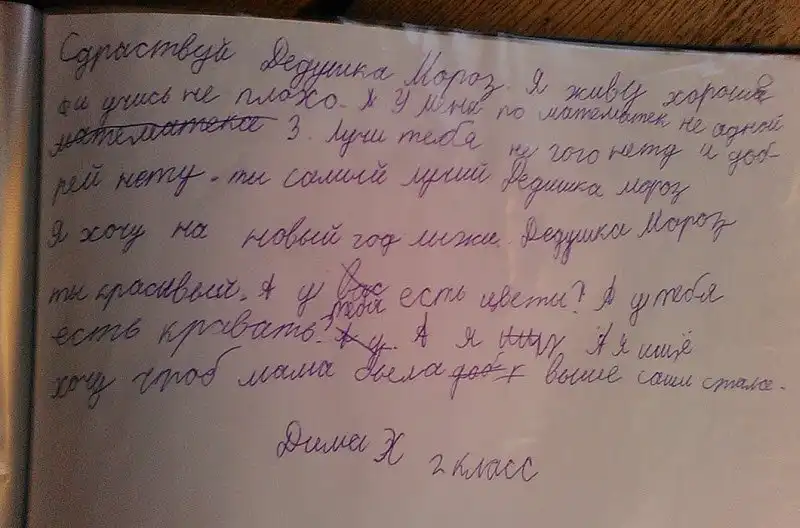 Сдраствуй Дедушка Мороз. Я живу хорошо
учись не плохо. А У меня по математек не адной
математека 3. Лучи тебя не гого нету и доб-
рей нету. ты самий лучий Дедушка мороз
Я хочу на новый год лижи. Дедушка Мороз
ты красивый. А у вас тебя есть цветы? А у тебя
есть кравать? А у. А я ищу А я ищё
хочу чтоб мама была доб выше саши стала.
Дима Х
2 класс